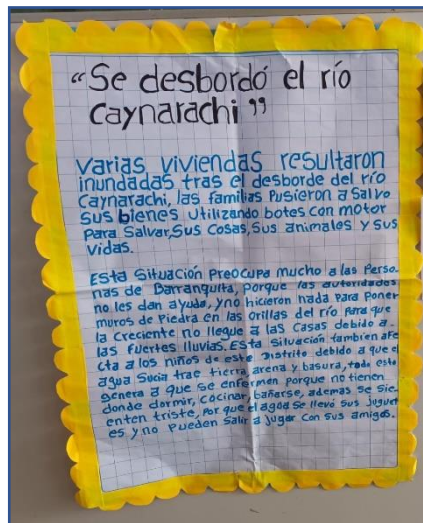 “Se desbordó el río
Caynarachi”
Varias viviendas resultaron
inundadas tras el desborde del río
Caynarachi, las familias Pusieron a Salvo
sus bienes utilizando botes con motor
Para Salvar, Sus Cosas, Sus animales y sus
Vidas.
Esta Situación preocupa mucho a las Perso-
nas de Barranquita, porque las autoridades
no les dan ayuda, y no hicieron nada Para Poner
muros de Piedra en las orillas del río Para que
la Creciente no llegue a las Casas debido a
las fuertes lluvias. Esta Situación tambien afe
cta a los niños de este Distrito debido a que el
agua Sucia trae tierra, arena y basura, todo esto
genera a que se enfermen porque no tienen
donde dormir, cocinar, bañarse, ademas se sie-
enten triste, Por que el agua se llevó sus juguet
es y no Pueden Salir a jugar con sus amigos.